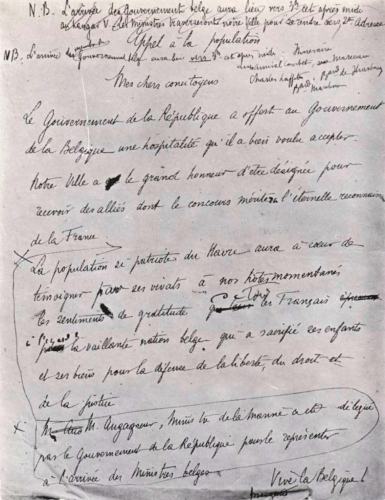 N.B. L'arrivée du Gouvernement belge aura lieu vers 3h cet après midi
au hangar V. Les Ministres traverseront notre Ville pour se rendre vers Ste Adresse
Appel à la population
N.B. L'arrivée du Gouvernement belge aura lieu vers cet après midi
Itinéraire
Mes chers concitoyens
Charles Laffitte Bard de Strasbourg
Le Gouvernement de la République a offert au Gouvernement
de la Belgique une hospitalité qu'il a bien voulu accepter
Notre Ville a le grand honneur d'être désignée pour
recevoir des alliés dont le concours mérite l'éternelle
de la France
La population si patriote du Havre aura à cœur de
témoigner par ses vivats à nos hôtes momentanés
les sentiments de gratitude les Français
la vaillante nation belge qui a sacrifié ses enfants
et ses biens pour la défense de la liberté, du droit et
de la justice
M. Augagneur, Ministre de la marine a été délégué
par le Gouvernement de la République pour le représenter
à l'arrivée des Ministres belges
Vive la Belgique !